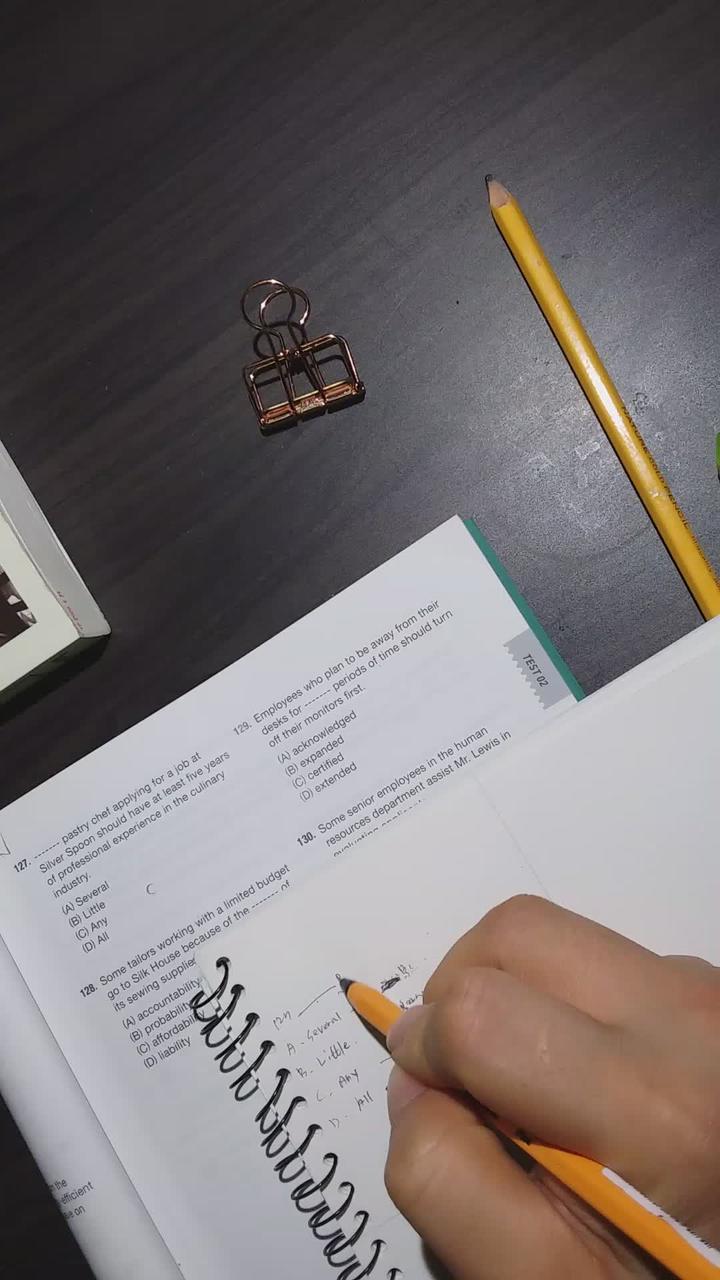 TEST 02
127. ------- pastry chef applying for a job at
Silver Spoon should have at least five years
of professional experience in the culinary
industry.
(A) Several
(B) Little
(C) Any
(D) All
C
128. Some tailors working with a limited budget
go to Silk House because of the ------- of
its sewing
(A) accountability
(B) probability
(C)
(D) liability
129. Employees who plan to be away from their
desks for ------- periods of time should turn
off their monitors first.
(A) acknowledged
(B) expanded
(C) certified
(D) extended
130. Some senior employees in the human
resources department assist Mr. Lewis in
A. Several
B. Little
C. Any
D. All
the
efficient
on